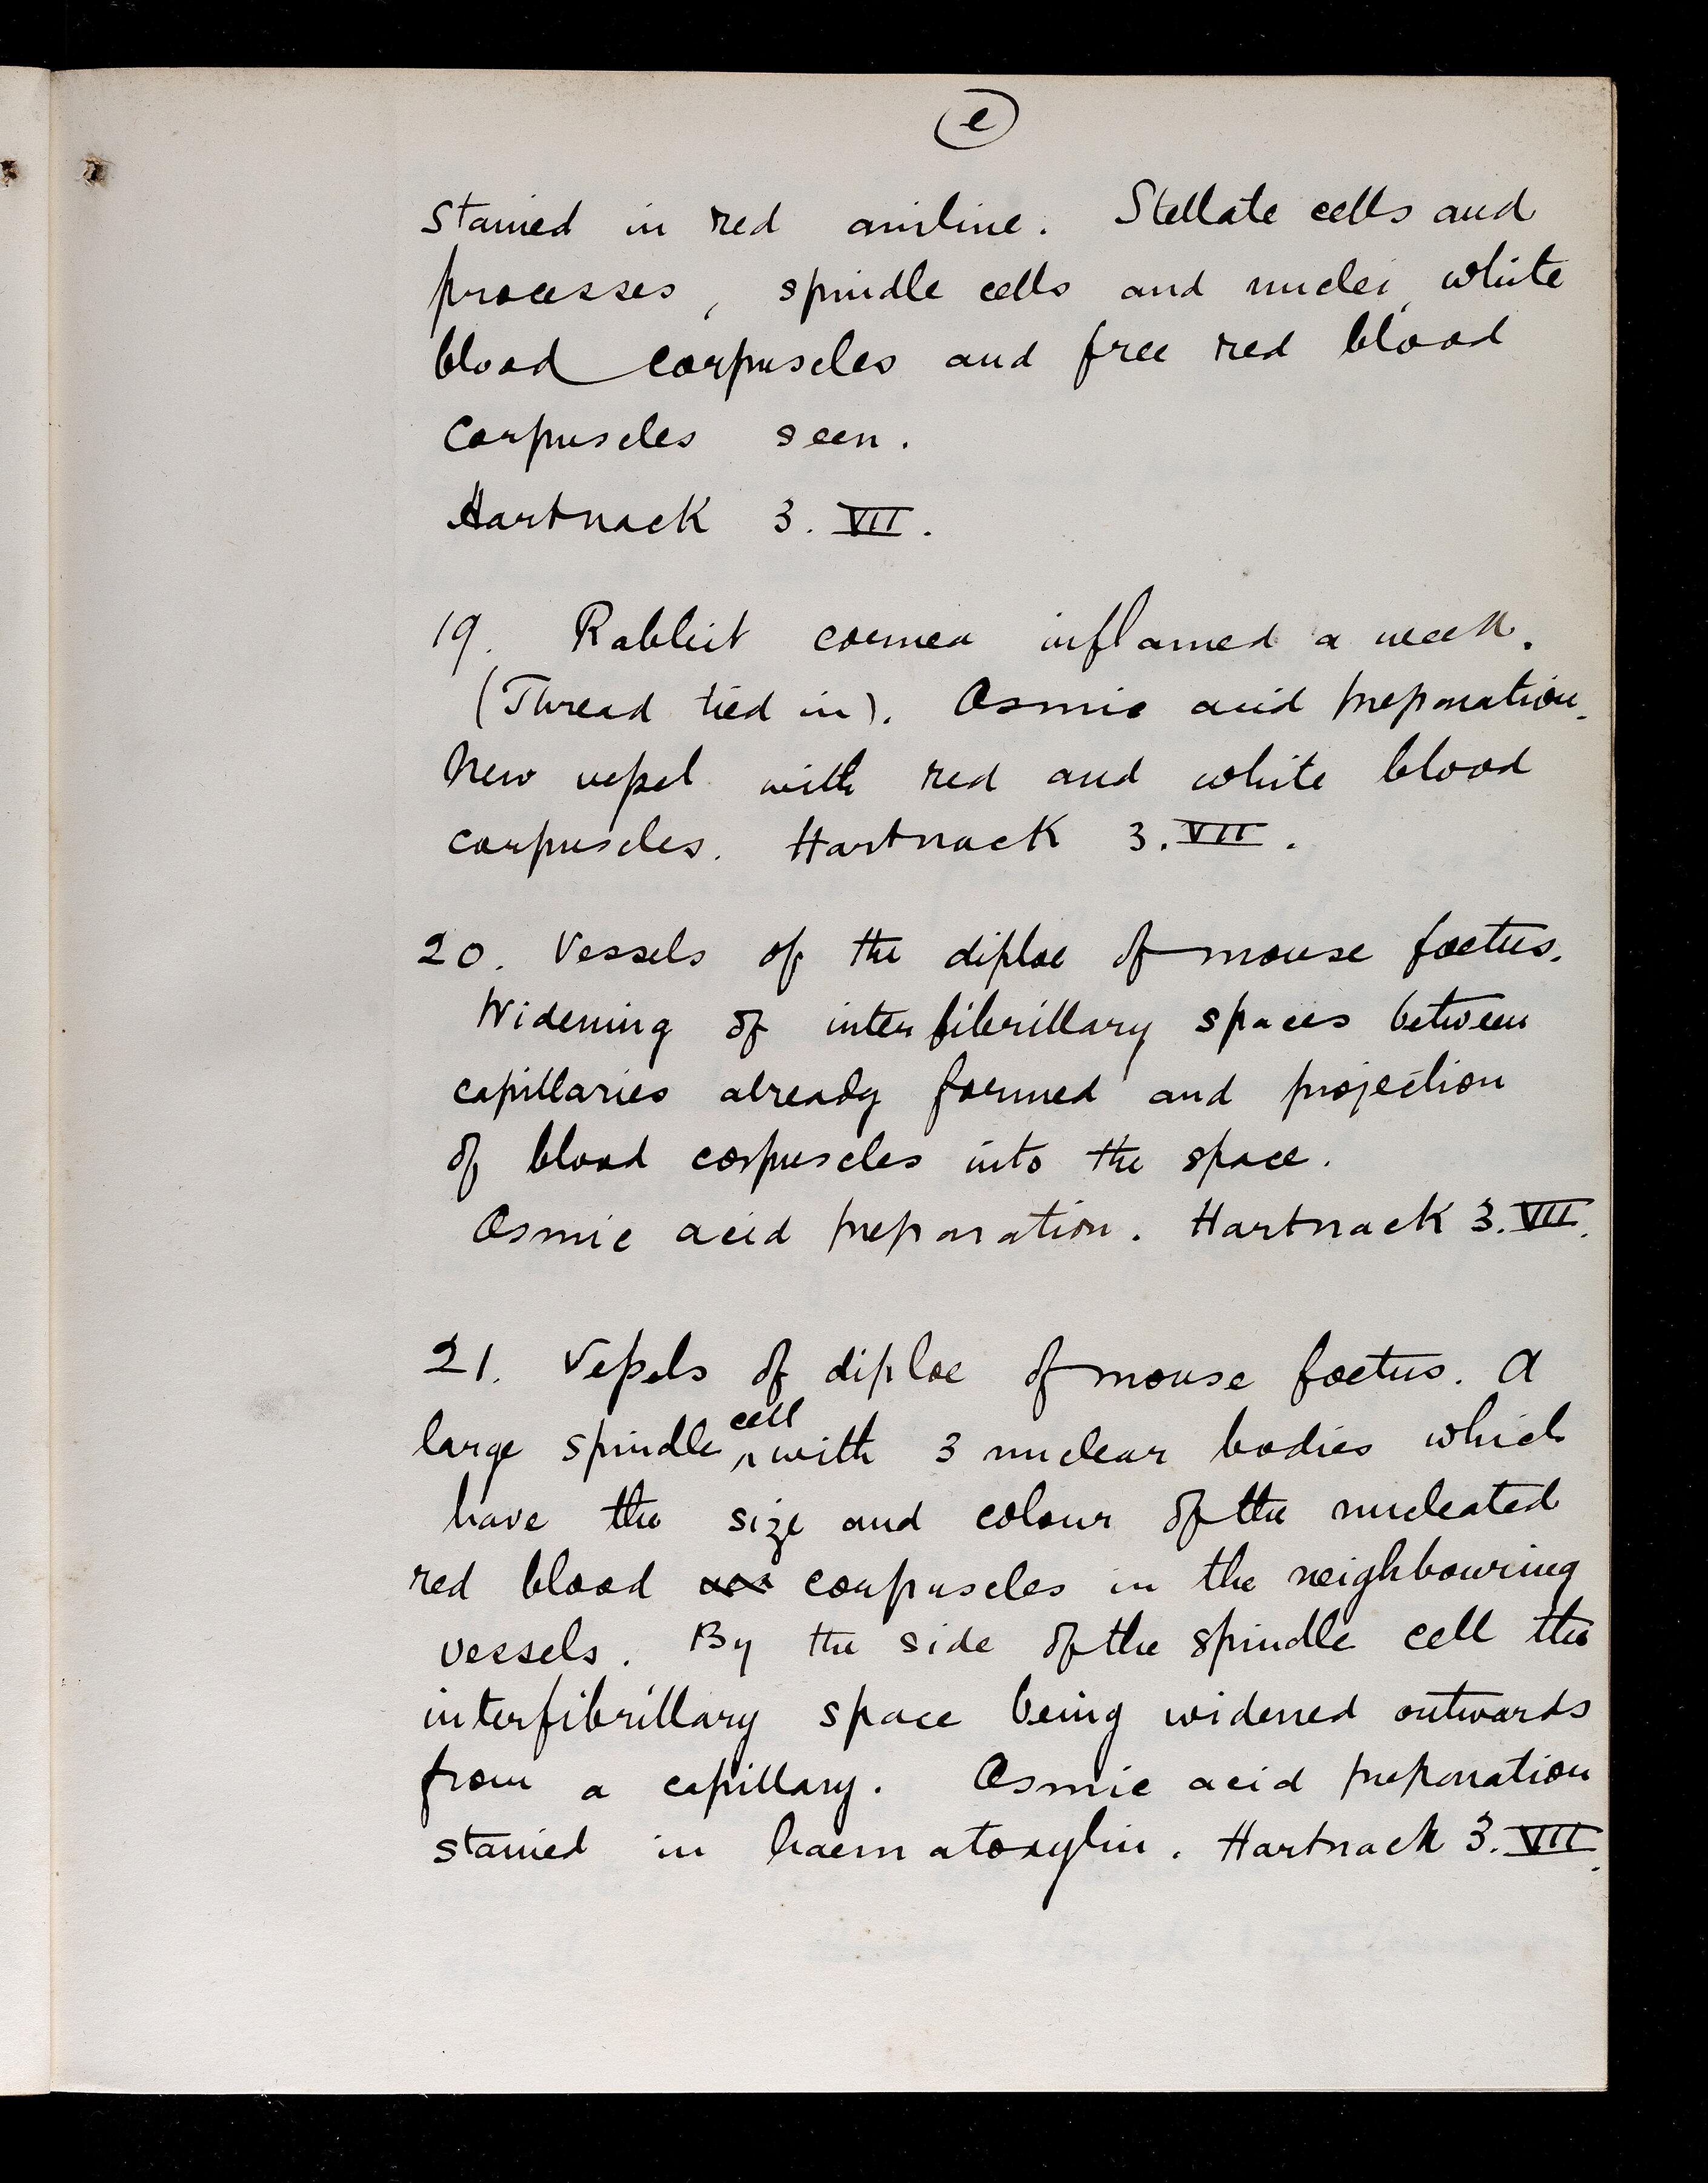 e
stained in red aniline. Stellate cells and
processes, spindle cells and nuclei, white
blood corpuscles and free red blood
corpuscles seen.
Hartnack 3. VII.
19. Rabbit cornea inflamed a week.
(Thread tied in). Osmic acid preparation.
New vessel with red and white blood
corpuscles. Hartnack 3. VII.
20. Vessels of the diploe of mouse foetus.
Widening of interfibrillary spaces between
capillaries already formed and projection
of blood corpuscles into the space.
Osmic acid preparation. Hartnack 3. VII.
21. Vessels of diploe of mouse foetus. A
large spindle cell with 3 nuclear bodies which
have the size and colour of the nucleated
red blood corpuscles in the neighbouring
vessels. By the side of the spindle cell the
interfibrillary space being widened outwards
from a capillary. Osmic acid preparation
stained in haematoxylin. Hartnack 3. VII.